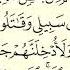 سَبِيلِي وَقَٰتَلُوا
وَلَأُدْخِلَنَّهُمْ جَ